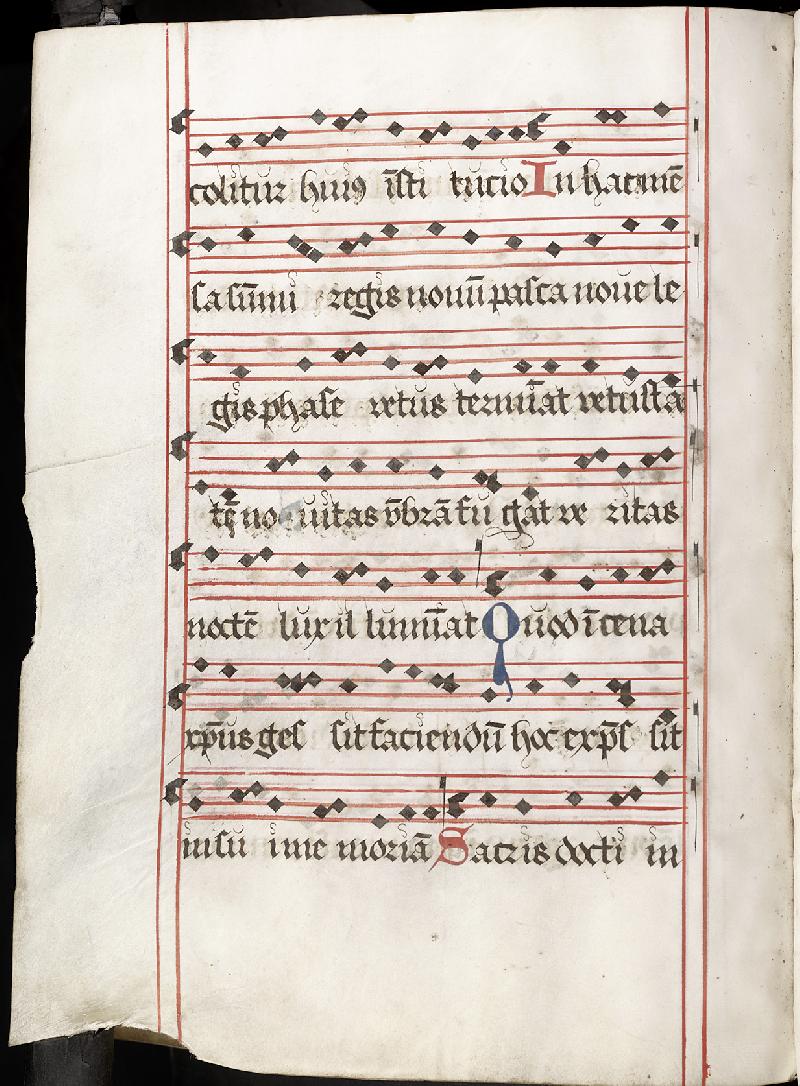 colitur huiꝰ īsti tucio In hac mē
sa sūmi regis nouū pasca noue le
gis phase vetus termīat vetustā
tē no uitas vm̄brā fu gat ve ritas
noctē lux il lumīat Quod ī cena
xp̄us ges sit faciendū hoc exp̄s sit
in su ī me moriā Sacris docti in